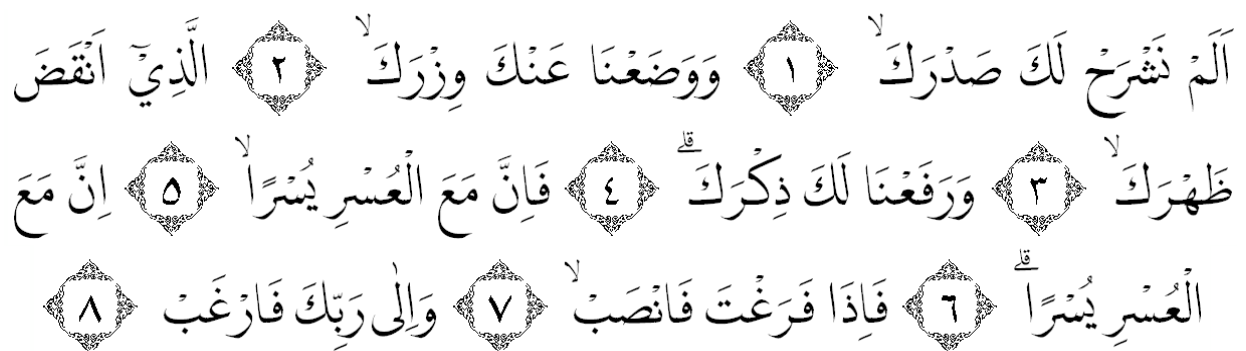 اَلَمْ نَشْرَحْ لَكَ صَدْرَكَۙ ١ وَوَضَعْنَا عَنْكَ وِزْرَكَۙ ٢ الَّذِيْٓ اَنْقَضَ
ظَهْرَكَۙ ٣ وَرَفَعْنَا لَكَ ذِكْرَكَۗ ٤ فَاِنَّ مَعَ الْعُسْرِ يُسْرًاۙ ٥ اِنَّ مَعَ
الْعُسْرِ يُسْرًاۗ ٦ فَاِذَا فَرَغْتَ فَانْصَبْۙ ٧ وَاِلٰى رَبِّكَ فَارْغَبْ ٨